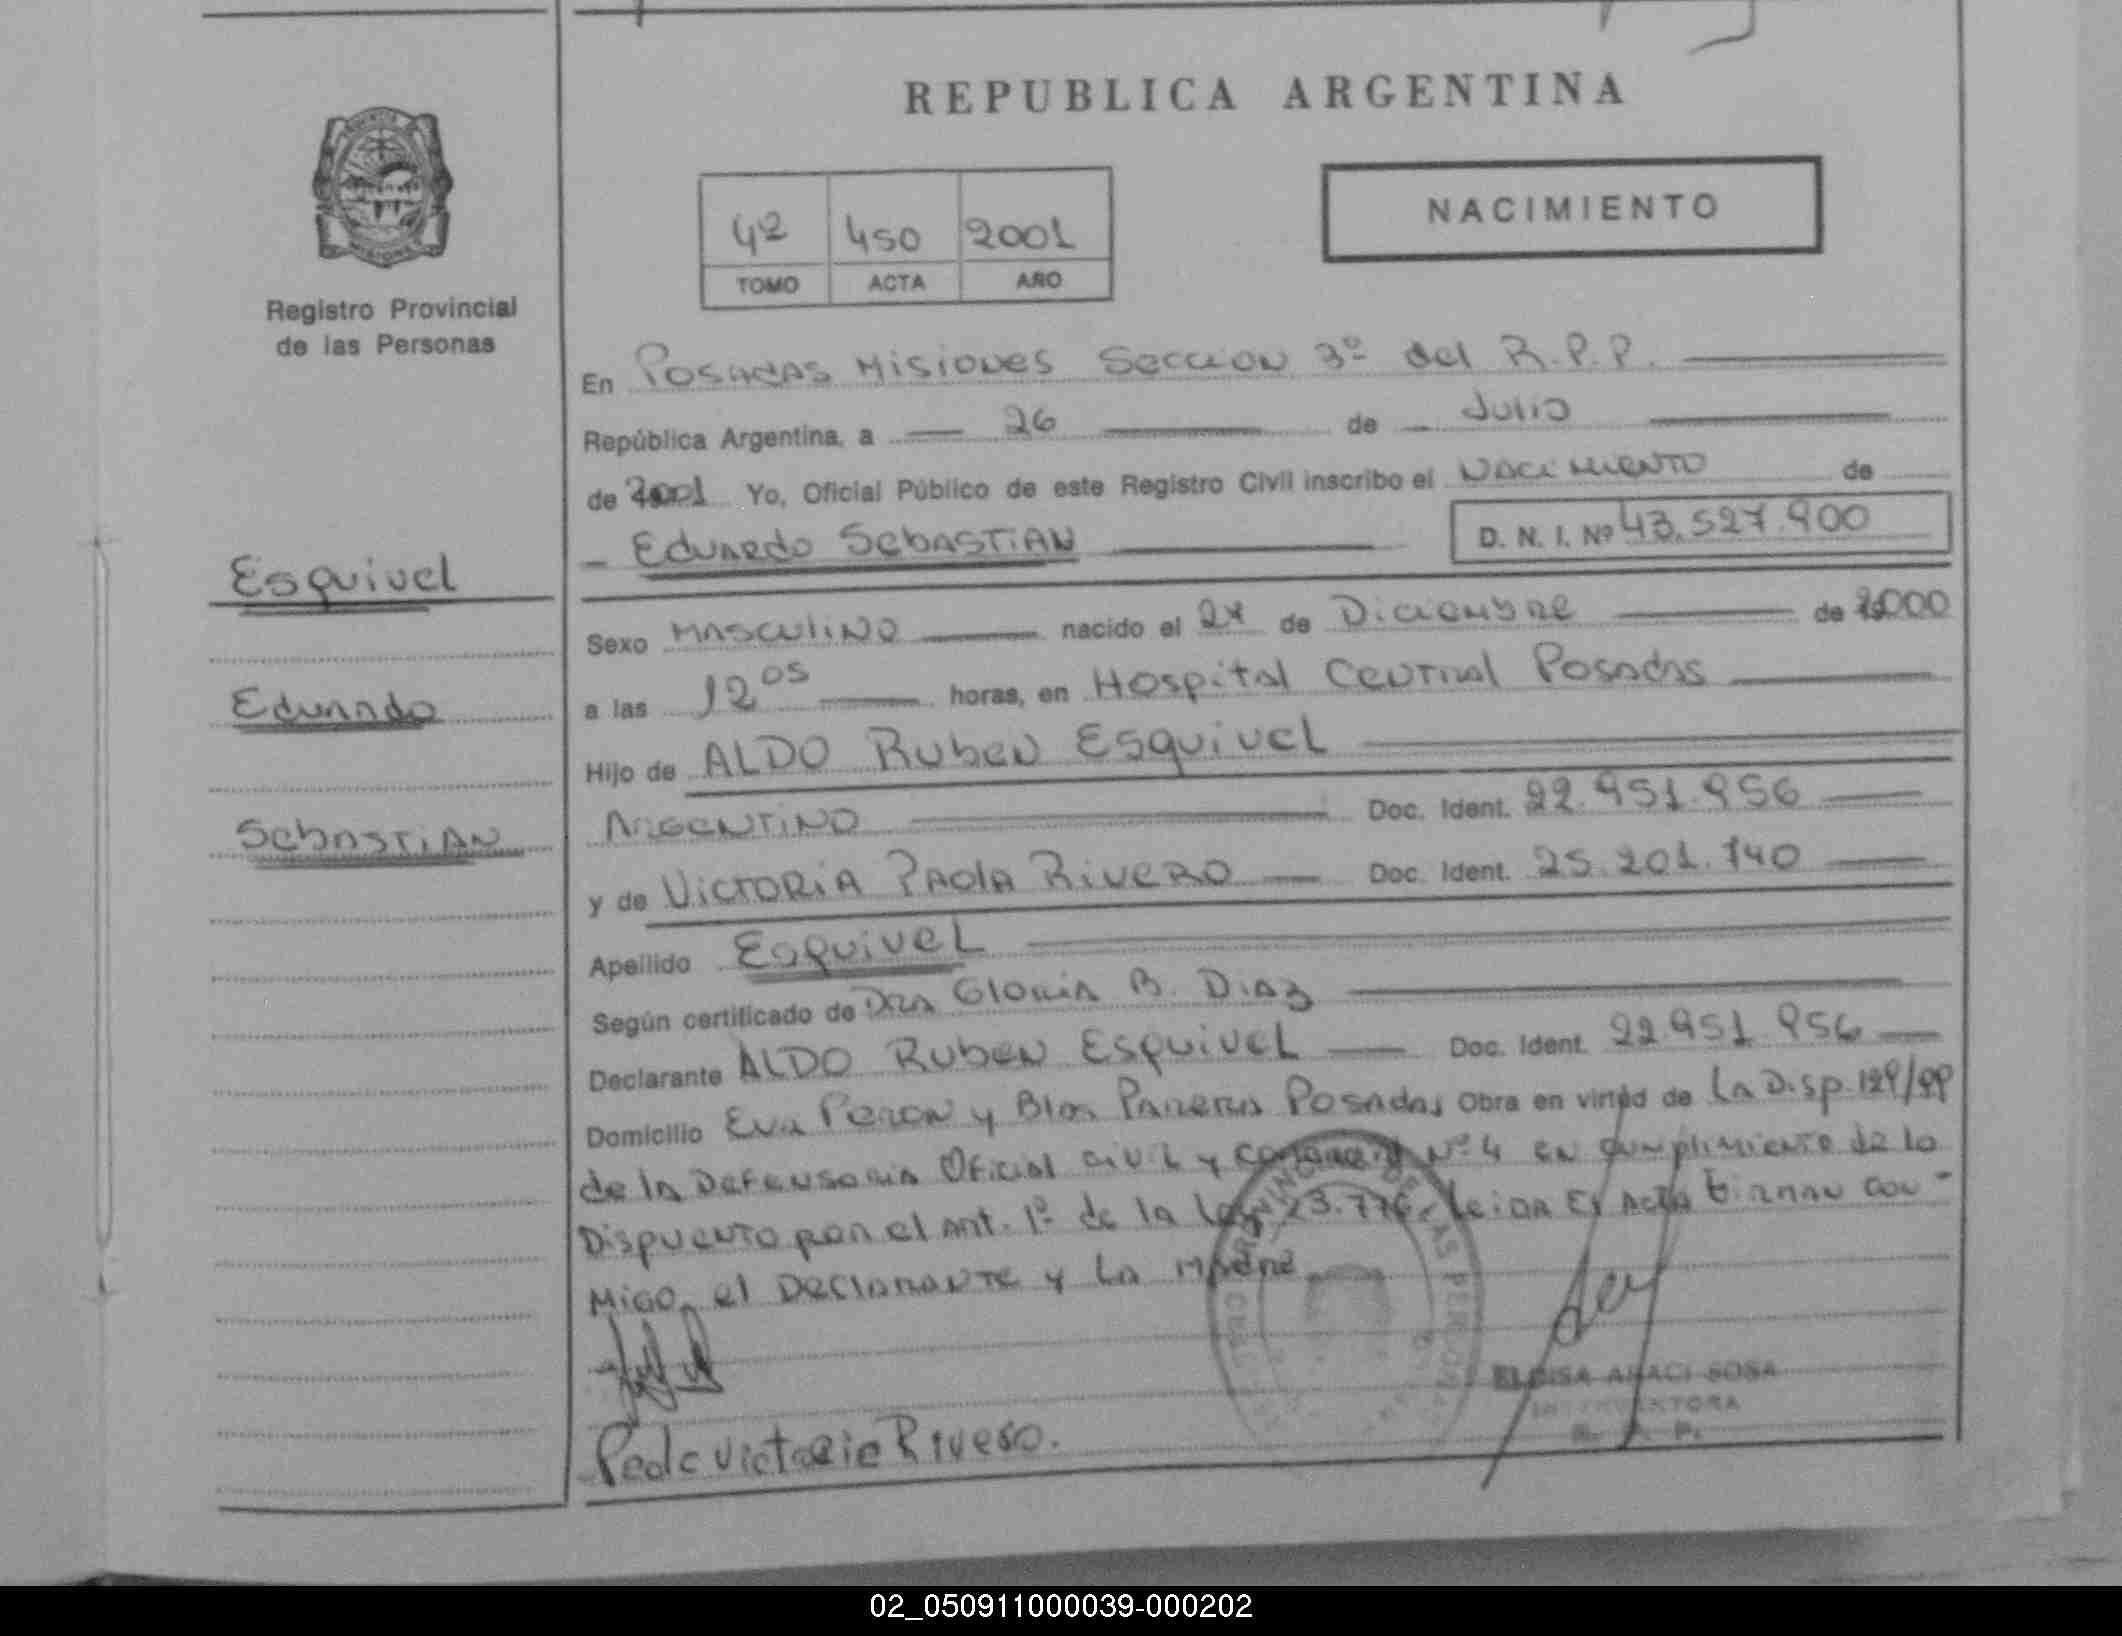 REPUBLICA ARGENTINA
NACIMIENTO
42 450 2001
TOMO ACTA AÑO
Registro Provincial
de las Personas
En Posadas Misiones Seccion 3º del R.P.P.
República Argentina, a 26 de Julio
de 2001 Yo, Oficial Público de este Registro Civil inscribo el Nacimiento de
Eduardo Sebastian D. N. I. Nº 43.527.900
Esquivel
Eduardo
Sebastian
Sexo Masculino nacido el 27 de Diciembre de 2000
a las 12 05 horas, en Hospital Central Posadas
Hijo de ALDO Ruben Esquivel
Argentino Doc. Ident. 22.951.956
y de Victoria Paola Rivero Doc. Ident. 25.201.740
Apellido Esquivel
Según certificado de Dra Gloria B. Diaz
Declarante ALDO Ruben Esquivel Doc. Ident. 22.951.956
Domicilio Eva Peron y Blas Parera Posadas Obra en virtud de La Disp. 129/99
de la Defensoria Oficial civil y Nº 4 en cumplimiento de lo
Dispuesto por el Art. 1º de la Ley 23.776. Leida El Acta firman con-
migo, el Declarante y La Madre
ELOISA ARACI SOSA
INTERVENTORA
R. P. P.
Paola Victoria Rivero.
02_050911000039-000202